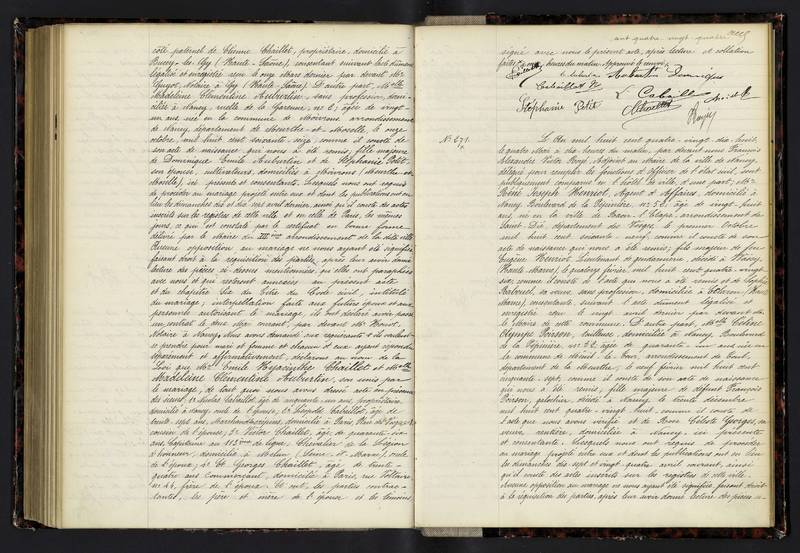 côté paternel de Etienne Chaillet, propriétaire, domicilié à
Bucey-les-Gy (Haute-Saône), consentant suivant acte dûment
légalisé et enregistré reçu d'onze mars dernier par devant Me
Guyot, Notaire à Gy (Haute-Saône). D'autre part, Melle
Madeleine Clémentine Aubertin, sans profession, domi-
ciliée à Nancy, ruelle de la Garenne, no 6; âgée de vingt-
un ans, née en la commune de Moivrons, arrondissement
de Nancy, département de Meurthe-et-Moselle, le onze
octobre, mil huit cent soixante-seize, comme il conste de
son acte de naissance qui nous a été remis, fille majeure
de Dominique Emile Aubertin et de Stéphanie Petit
son épouse, cultivateurs, domiciliés à Moivrons (Meurthe-et-
Moselle), ici présents et consentants. Lesquels nous ont requis
de procéder au mariage projeté entre eux et dont les publications ont eu
lieu les dimanches dix et dix-sept avril dernier, ainsi qu'il conste des actes
inscrits sur les registres de cette ville et en celle de Paris, les mêmes
jours, ce qui est constaté par le certificat en bonne forme
délivré par le Maire du arrondissement de la dite ville
Aucune opposition au mariage ne nous ayant été signifiée
faisant droit à la réquisition des parties, après leur avoir donné
lecture des pièces ci-dessus mentionnées, qu'elles ont paraphées
avec nous et qui resteront annexées au présent acte
et du chapitre Six du Titre du Code civil, intitulé
du mariage; interpellation faite aux futurs époux et aux
personnes autorisant le mariage, ils ont déclaré avoir passé
un contrat le deux mai courant par devant Me
Notaire à Nancy. Nous avons demandé aux requérants s'ils veulent
se prendre pour mari et femme et chacun d'eux ayant répondu
séparément et affirmativement, déclarons au nom de la
Loi que Mr Emile Hyacinthe Chaillet et Melle
Madeleine Clémentine Aubertin, son unis par
le mariage, de tout quoi nous avons dressé acte en présence
des sieurs, 1o Nicolas Cabaillot, âgé de cinquante-un ans, propriétaire,
domicilié à Nancy, rue de l'Equité, 2o Léopold Cabaillot, âgé de
trente-sept ans, Marchand, domicilié à Paris,
cousin de l'épouse; 3o Victor Chaillet, âgé de quarante-six
ans, Capitaine au 113ème de ligne, Chevalier de la Légion
d'honneur, domicilié à Melun (Seine-et-Marne), oncle
de l'époux; 4o et Georges Chaillet, âgé de trente-
quatre ans, commerçant, domicilié à Paris, rue Voltaire
no 44, frère de l'époux. Et ont, les parties contrac-
tantes, les père et mère de l'épouse et les témoins
cent quatre-vingt-quatre
signé avec nous le présent acte, après lecture et collation
faites heures du matin. Approuvé
Aubertin Dominique
Cabaillot N
L Cabaillot
Stéphanie Petit
E Chaillet
No 271.
L'An mil huit cent quatre-vingt-dix-huit,
le quatre Mai à dix heures du matin, par devant nous François
Alexandre Victor Royé, Adjoint au Maire de la ville de Nancy,
délégué pour remplir les fonctions d'officier de l'état civil, sont
publiquement comparus en l'hôtel de ville, d'une part, Mr
René Joseph Henriot, Agent d'Affaires, domicilié à
Nancy, Boulevard de la Pépinière, no 52, âgé de vingt-huit
ans, né en la ville de Raon-l'Etape, arrondissement de
Saint-Dié, département des Vosges, le premier Octobre
mil huit cent soixante-neuf, comme il conste de son
acte de naissance qui nous a été remis; fils majeur de feu
Eugène Henriot, Lieutenant de gendarmerie, décédé à Wassy,
(Haute-Marne), le quatorze février, mil huit cent quatre-vingt-
six, comme il conste de l'acte que nous a été remis et de Sophie
sa veuve, sans profession, domiciliée à (Haute-
Marne), consentante, suivant acte dûment légalisé et
enregistré reçu le vingt avril dernier par devant
le Maire de cette commune. D'autre part, Melle Céleste
Olympe Poirson, tailleuse, domiciliée à Nancy, Boulevard
de la Pépinière, no 52, âgée de quarante-un ans, née en
la commune de Ménil-la-Tour, arrondissement de Toul,
département de la Meurthe, le neuf février mil huit cent
cinquante-sept, comme il conste de son acte de naissance
qui nous a été remis; fille majeure de défunt François
Poirson, galochier, décédé à Nancy le trente décembre
mil huit cent quatre-vingt-huit, comme il conste de
l'acte que nous avons vérifié et de Rose Céleste Georges, sa
veuve, rentière, domiciliée à Nancy, ici présente
et consentante. Lesquels nous ont requis de procéder
au mariage projeté entre eux et dont les publications ont eu lieu
les dimanches dix-sept et vingt-quatre avril suivant, ainsi
qu'il conste des actes inscrits sur les registres de cette ville.
Aucune opposition au mariage ne nous ayant été signifiée, faisant droit
à la réquisition des parties, après leur avoir donné lecture des pièces ci-